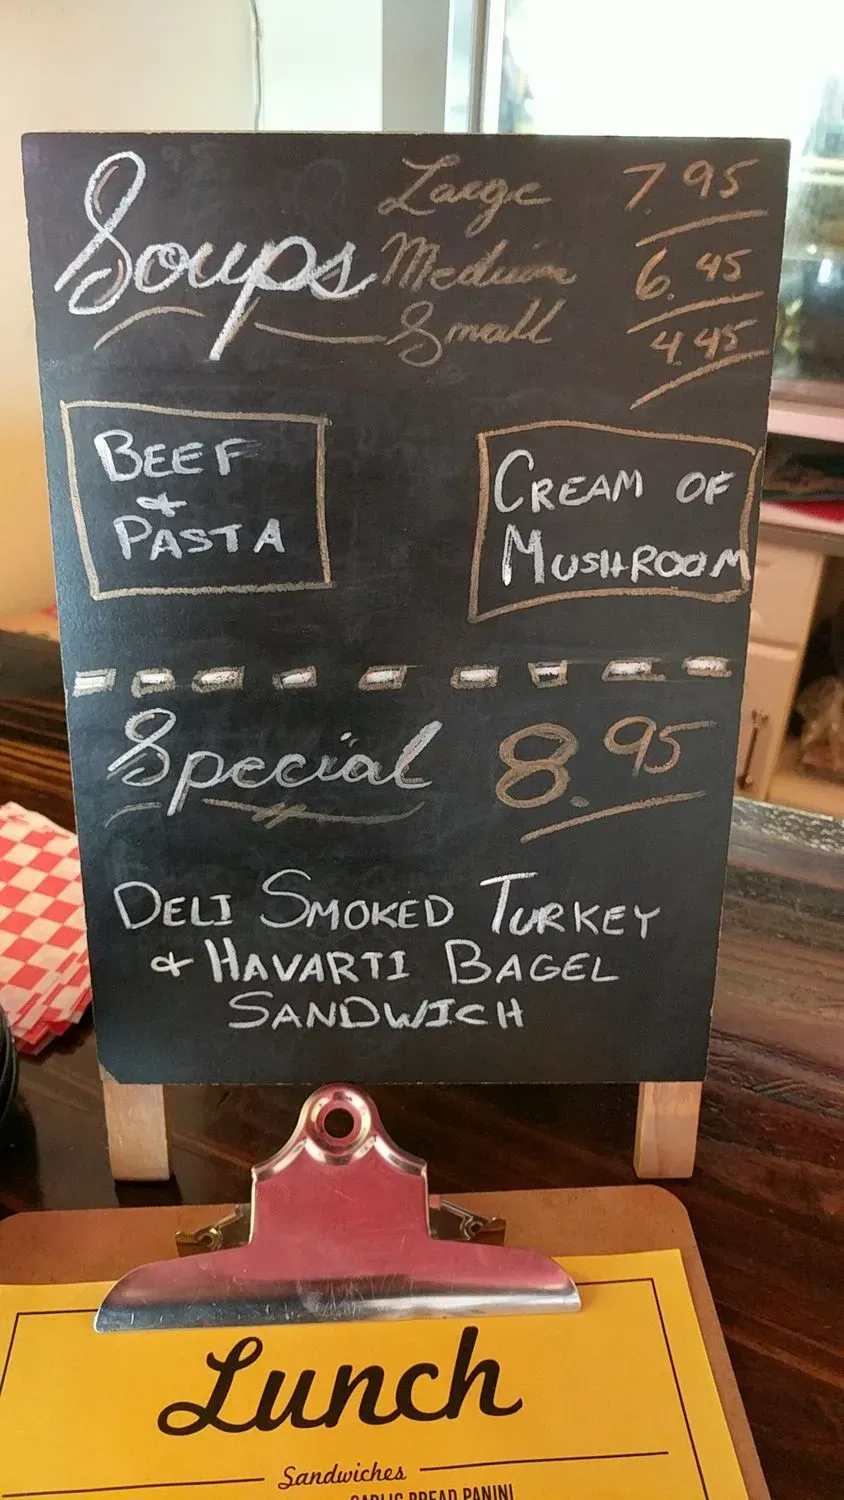 Soups Large 7.95
Medium 6.45
Small 4.45
BEEF
&
PASTA
CREAM OF
MUSHROOM
Special 8.95
DELI SMOKED TURKEY
& HAVARTI BAGEL
SANDWICH
Lunch
Sandwiches
GARLIC BREAD PANINI